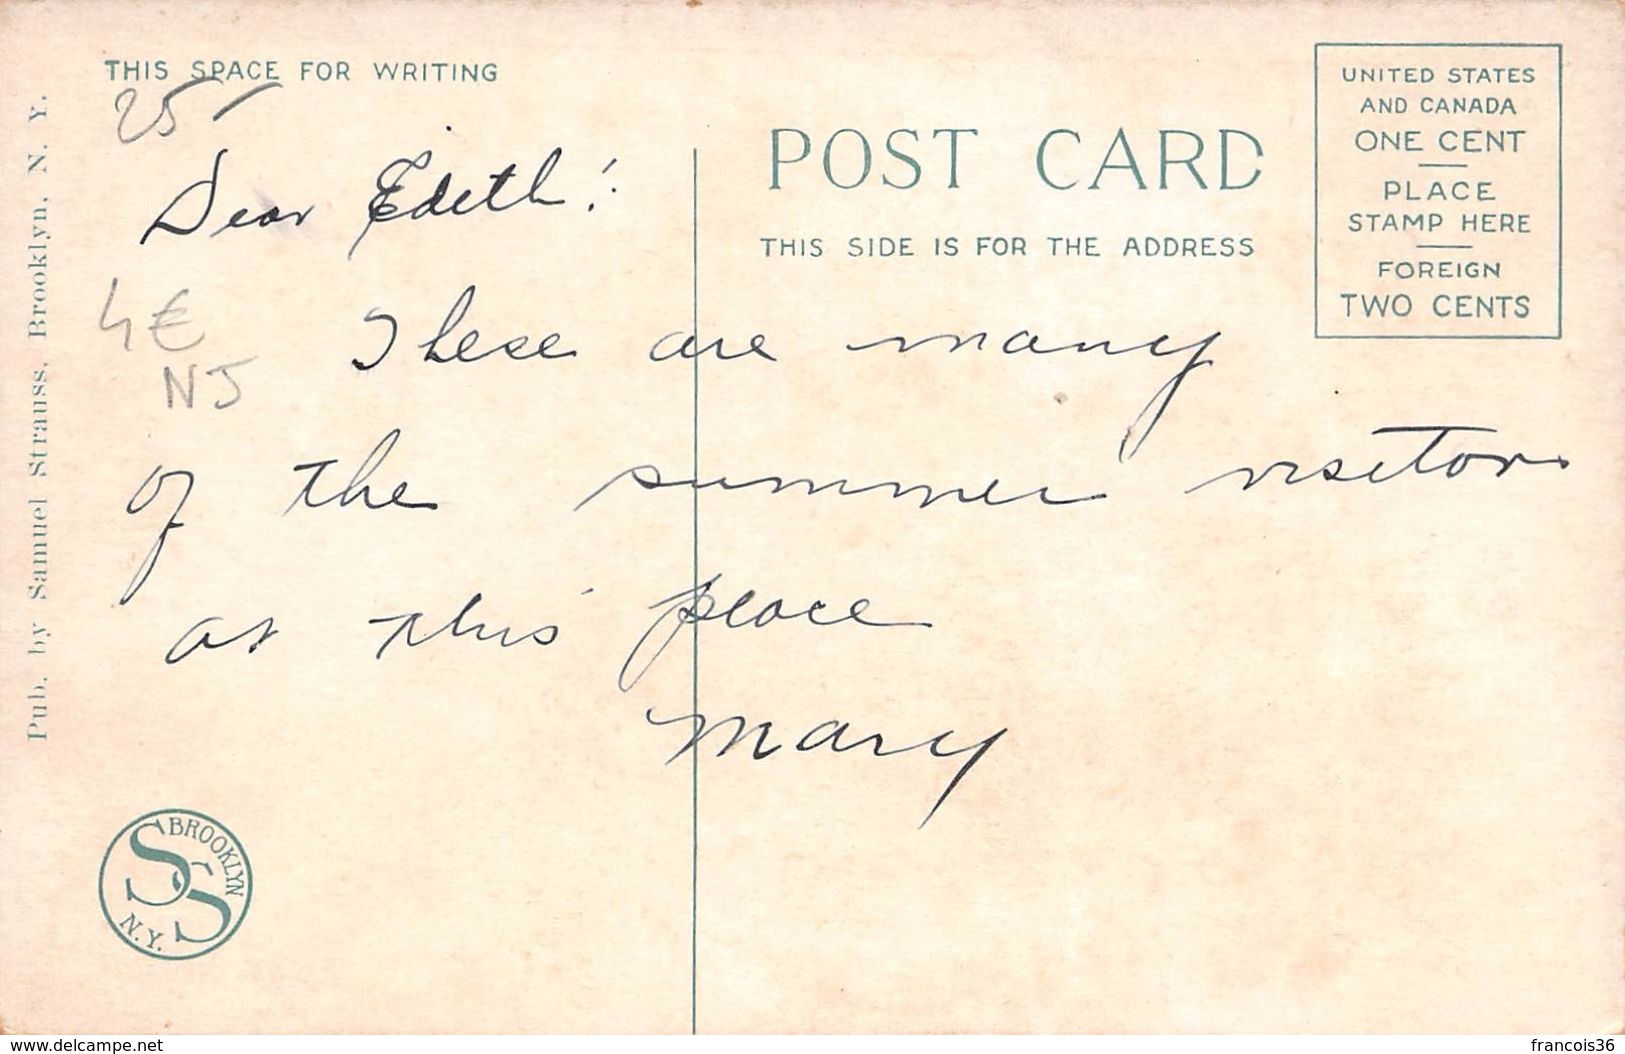 THIS SPACE FOR WRITING
25
Dear Edith!
4 €
NJ
These are many
of the summer visitors
at this place
Mary
POST CARD
THIS SIDE IS FOR THE ADDRESS
UNITED STATES
AND CANADA
ONE CENT
PLACE
STAMP HERE
FOREIGN
TWO CENTS
Pub. by Samuel Strauss, Brooklyn, N. Y.
SS BROOKLYN
N.Y.
www.delcampe.net
francois36